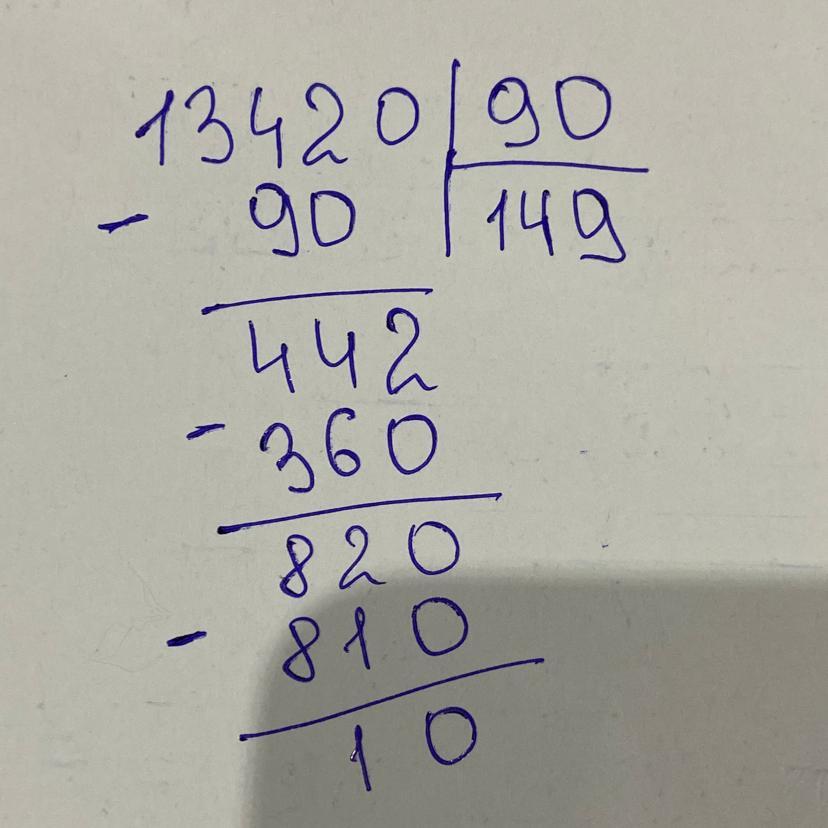 13420 | 90
- 90 149
442
- 360
820
- 810
10